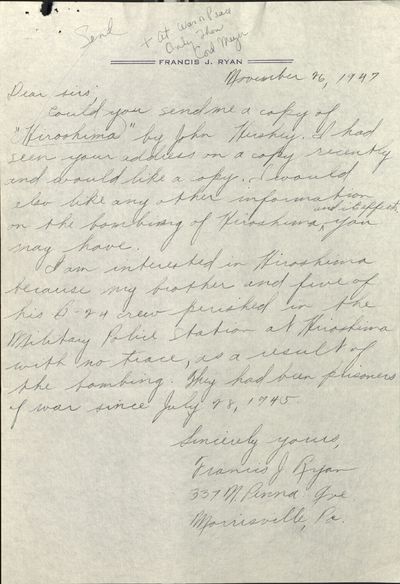 Send
+ At War or Peace
Only Than
Cord Meyer
FRANCIS J. RYAN
November 26, 1947
Dear sirs:
Could you send me a copy of
"Hiroshima" by John Hershey. I had
seen your address on a copy recently
and would like a copy. I would
also like any other information
on the bombing of Hiroshima, and its effects, you
may have.
I am interested in Hiroshima
because my brother and five of
his B-24 crew perished in the
Military Police Station at Hiroshima
with no trace, as a result of
the bombing. They had been prisoners
of war since July 28, 1945.
Sincerely yours,
Francis J. Ryan
337 N. Penna. Ave.
Morrisville, Pa.